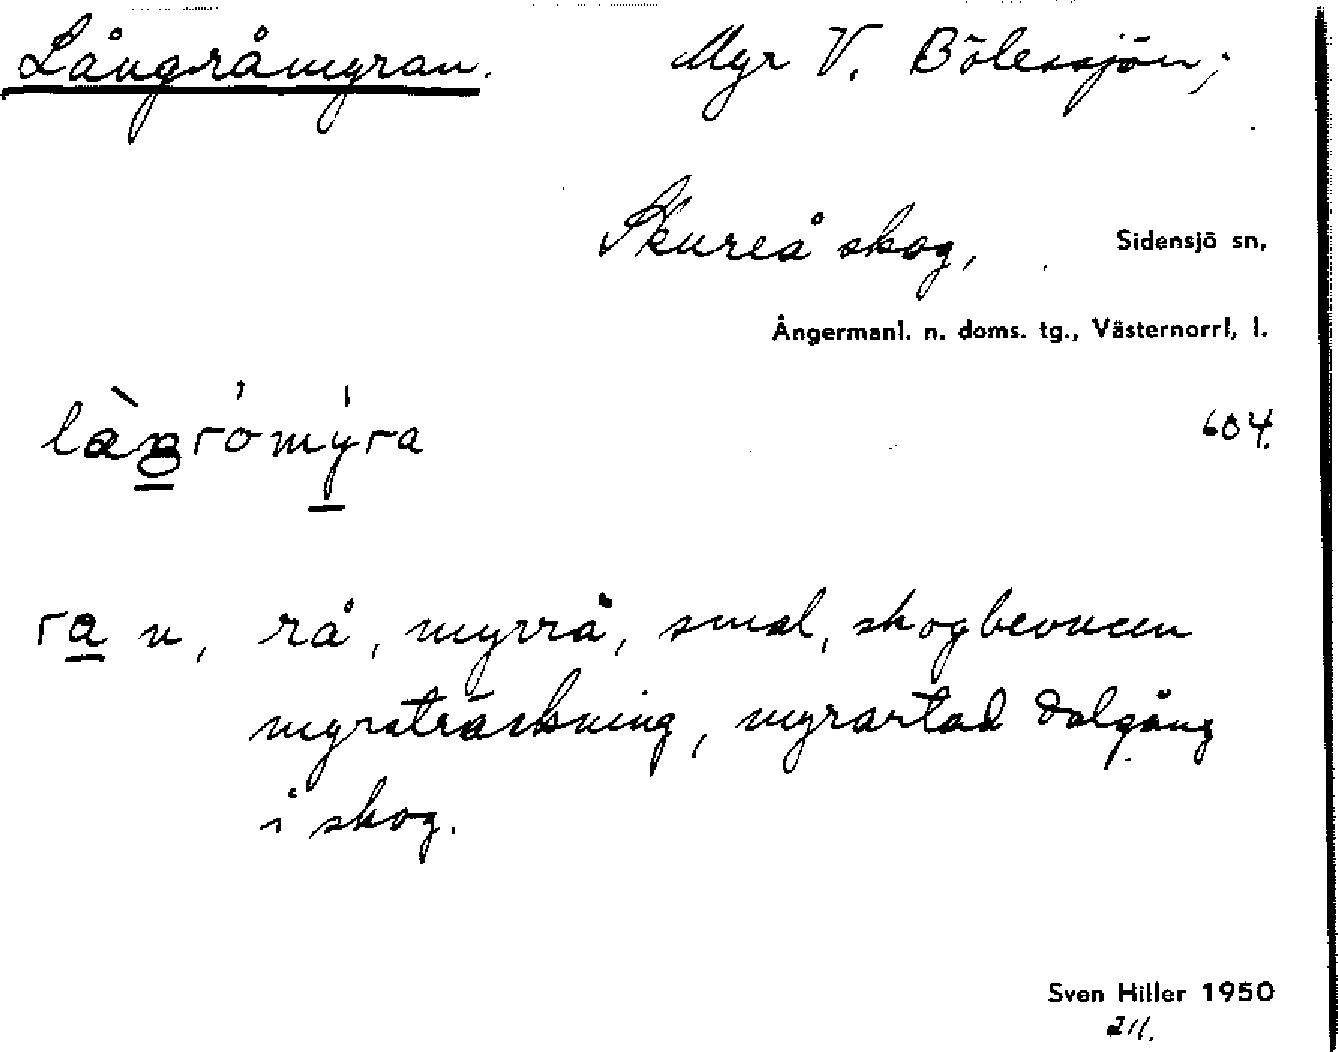 Långråmyran. Myr V. Bölessjön;
Skureå skog, Sidensjö sn,
Ångermanl. n. doms. tg., Västernorrl, l.
604.
ra n, rå, myrrå, smal, skogbevuxen
myrsträckning, myrartad dalgång
i skog.
Sven Hiller 1950
211.